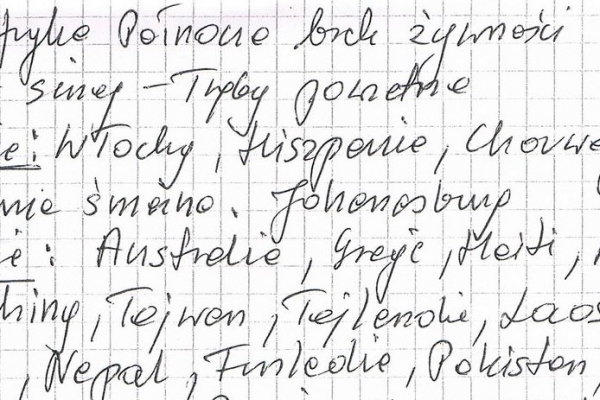 fryka Północna brak żywności
siney - Tręby powietrne
ie: Włochy, Hiszpania, Chorwa
nie śmeino. Johanesburg
ie: Australia, Grecję, Haiti,
hiny, Tajwan, Tajlandia, Laos
, Nepal, Finlandia, Pakistan,